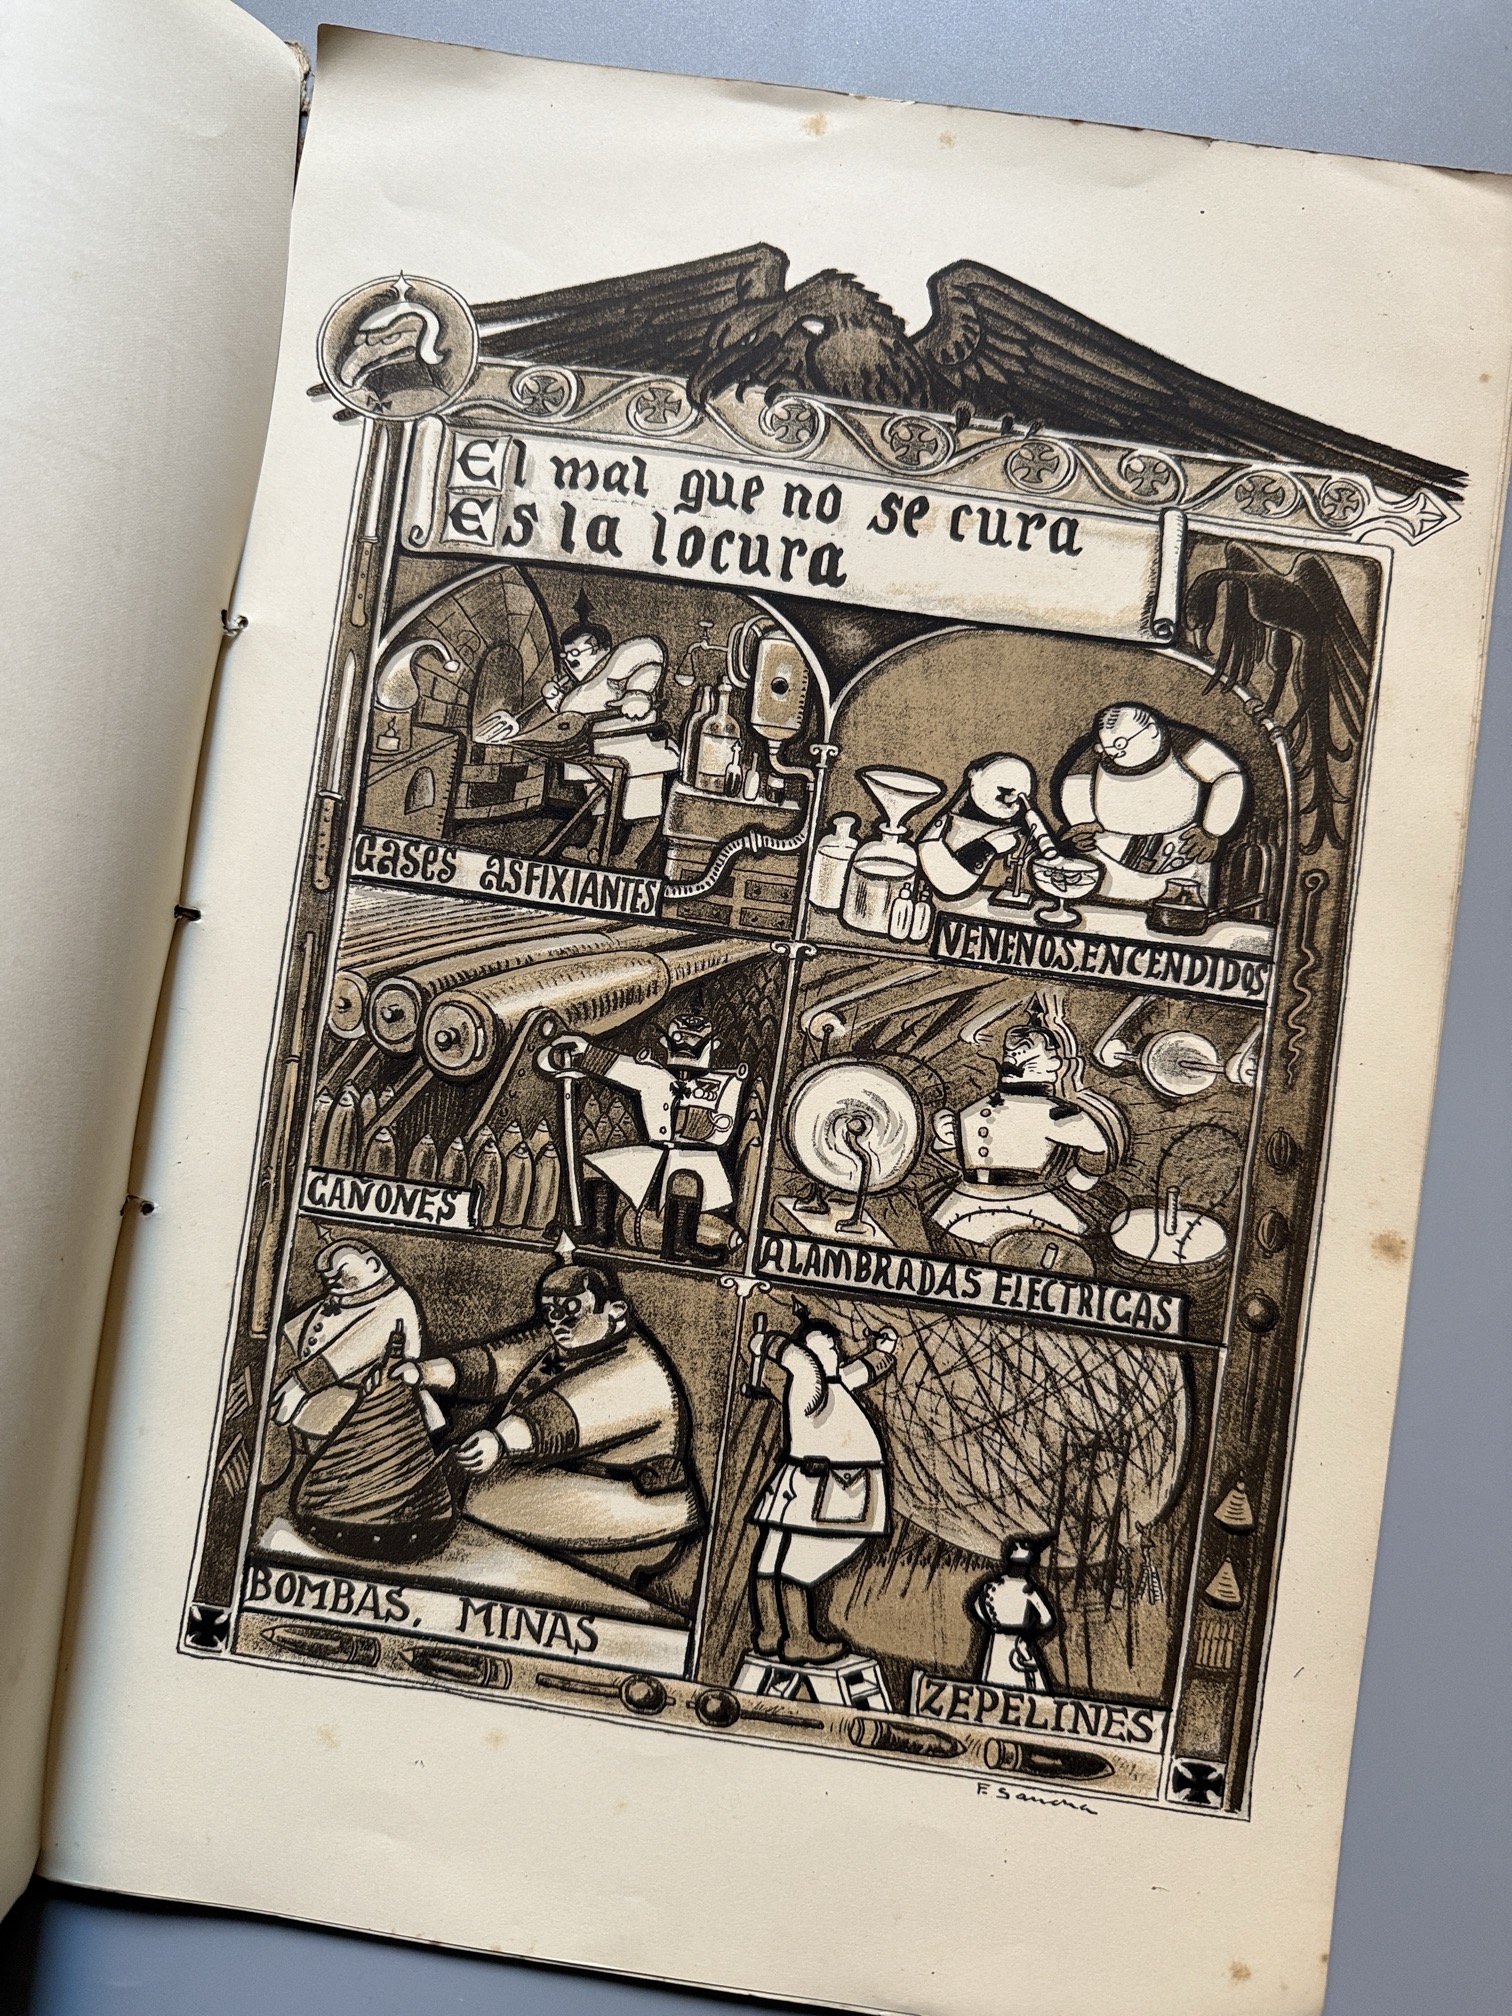 El mal que no se cura
Es la locura
GASES ASFIXIANTES
VENENOS, ENCENDIDOS
CAÑONES
ALAMBRADAS ELECTRICAS
BOMBAS, MINAS
ZEPELINES
F. Sancha